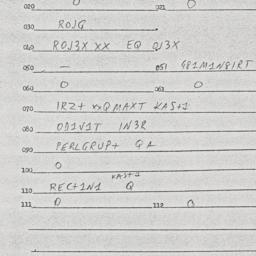 020 0 021 0
030 ROJG
040 ROJ3X XX EQ QJ3X
050 — 051 481M1N81RT
060 0 061 0
070 1RZ+ XXQMAXT KAS+1
080 OD1V1T 1N3R
090 PERLGRUP+ QA
100 0
KAS+1
110 REC+1N1 Q
111 0 112 0